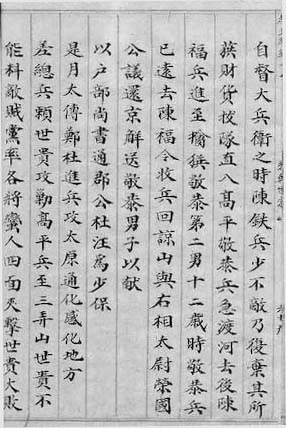 自督大兵衛之時陳鉄兵少不敵乃復棄其所
獲財貨投隊直入高平敬恭兵急渡河去後陳
福兵進至擒獲敬恭第二男十二歳時敬恭兵
已遠去陳福令收兵回諒山與右相太尉榮國
公議還京解送敬恭男子以献
以户部尚書通郡公杜汪為少保
是月太傅鄭杜進兵攻太原通化感化地方
差總兵頼世貴攻勦高平兵至三弄山世貴不
能料敵賊黨率各將蠻人四面夾擊世貴大敗